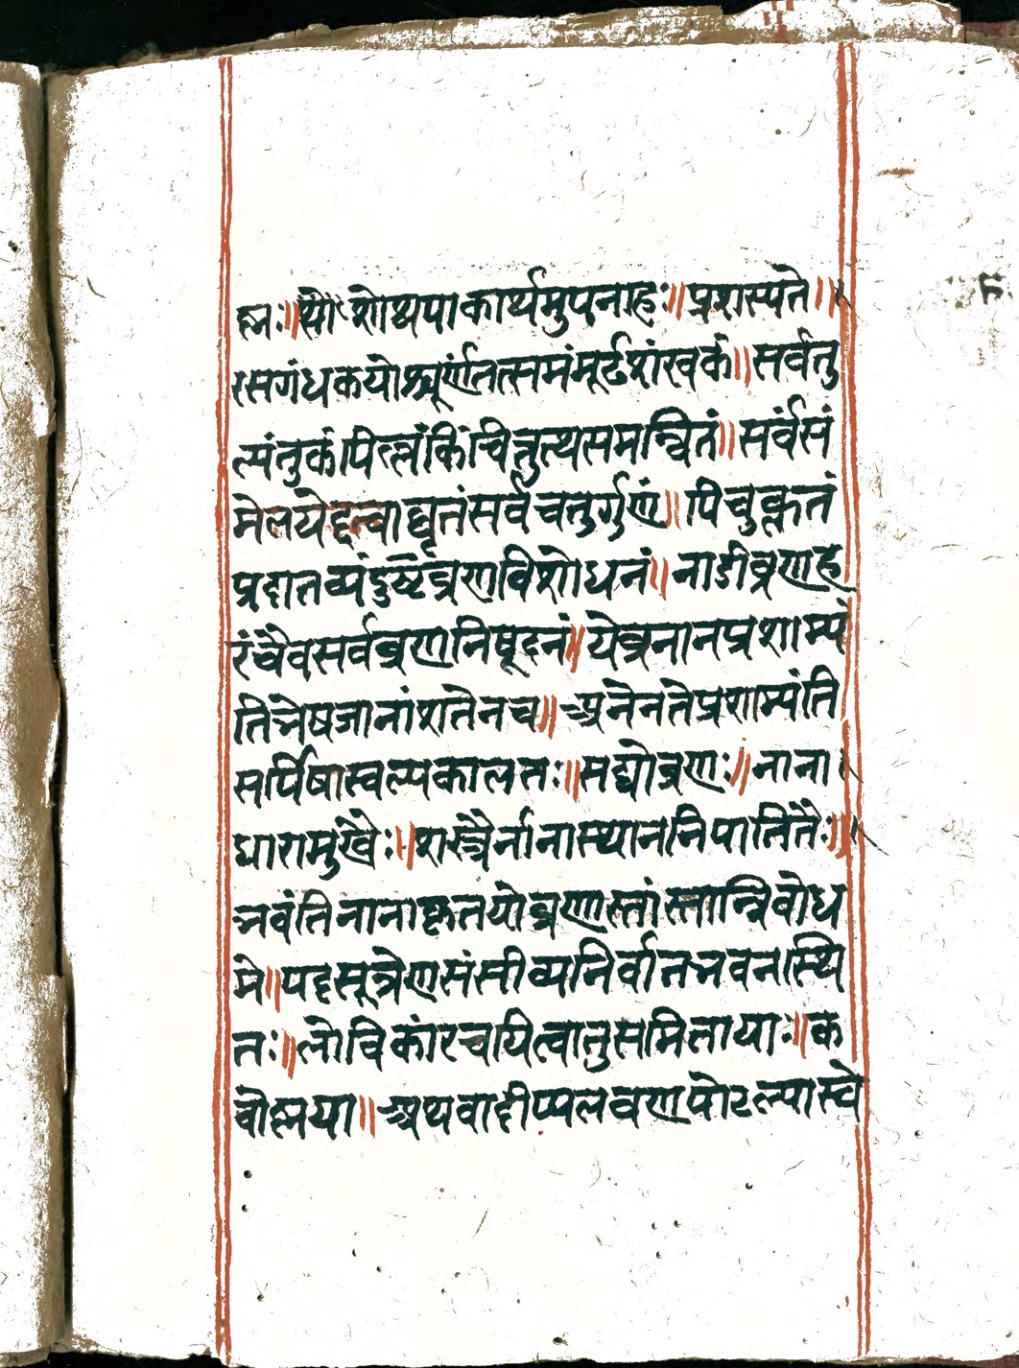 ह्नः॥ यो शोथपाकार्थमुपनाहः॥ प्रशस्यते॥
रसगंधकयोश्चूर्णंतत्समंमूर्दशंखकं॥ सर्वतु
ल्यंतुकंपिल्लंकिंचित्तुत्थसमन्वितं॥ सर्वंसं
मेलयेद्दत्वाघृतंसर्वचतुर्गुणं॥ पिचुक्लतं
प्रदातव्यंदुष्टव्रणविशोधनं॥ नाडीव्रणह
रंचैवसर्वव्रणनिषूदनं॥ येव्रनानप्रशाम्यं
तिभेषजानांशतेनच॥ अनेनतेप्रशाम्यंति
सर्पिषास्वल्पकालतः॥ सद्योव्रणः॥ नाना
धारामुखैः॥ शस्त्रैर्नानास्थाननिपातितैः॥
भवंतिनानाकृतयोव्रणास्तांस्तान्निबोध
मे॥ पट्टसूत्रेणसंसीव्यनिर्वातभवनस्थि
तः॥ लोविकांरचयित्वातुसमिताया॥ क
वोष्णया॥ अथवादीप्यलवणपोटल्यास्वे